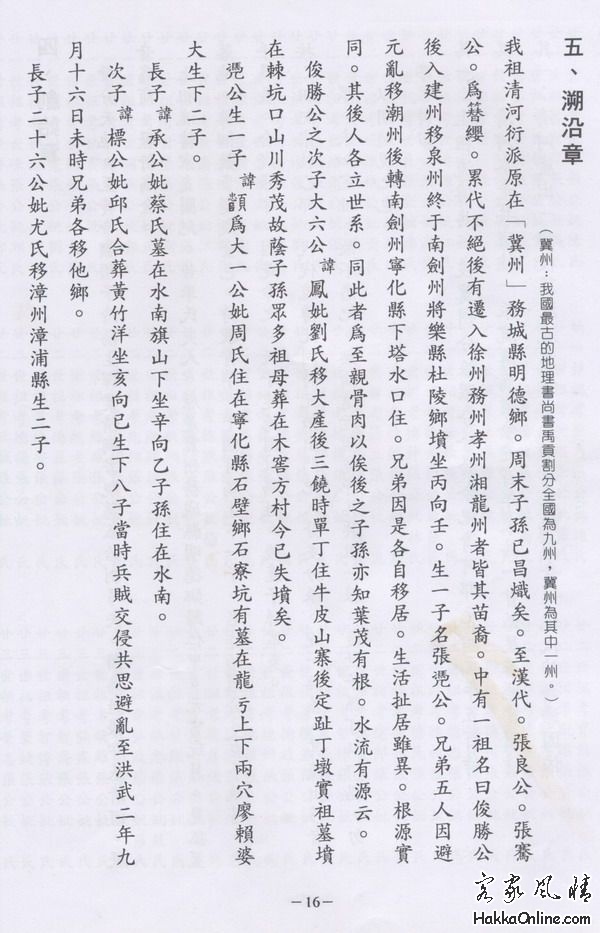 五、溯沿章
(冀州:我國最古的地理書尚書禹貢劃分全國為九州,冀州為其中一州。)
我祖清河衍派原在「冀州」務城縣明德鄉。周末子孫已昌熾矣。至漢代。張良公。張騫
公。爲簪纓。累代不絕後有遷入徐州務州孝州湘龍州者皆其苗裔。中有一祖名曰俊勝公
後入建州移泉州終于南劍州將樂縣杜陵鄉墳坐丙向壬。生一子名張虎公。兄弟五人因避
元亂移潮州後轉南劍州寧化縣下塔水口住。兄弟因是各自移居。生活扯居雖異。根源實
同。其後人各立世系。同此者爲至親骨肉以俟後之子孫亦知葉茂有根。水流有源云。
俊勝公之次子大六公諱鳳妣劉氏移大產後三饒時單丁住牛皮山寨後定趾丁墩實祖墓墳
在棘坑口山川秀茂故蔭子孫眾多祖母葬在木窖方村今已失墳矣。
虎公生一子諱爲大一公妣周氏住在寧化縣石壁鄉石寮坑有墓在龍亏上下兩穴廖賴婆
大生下二子。
長子諱承公妣蔡氏墓在水南旗山下坐辛向乙子孫住在水南。
次子諱標公妣邱氏合葬黃竹洋坐亥向巳生下八子當時兵賊交侵共思避亂至洪武二年九
月十六日未時兄弟各移他鄉。
長子二十六公妣尤氏移漳州漳浦縣生二子。
－16－
客家風情
HakkaOnline.com